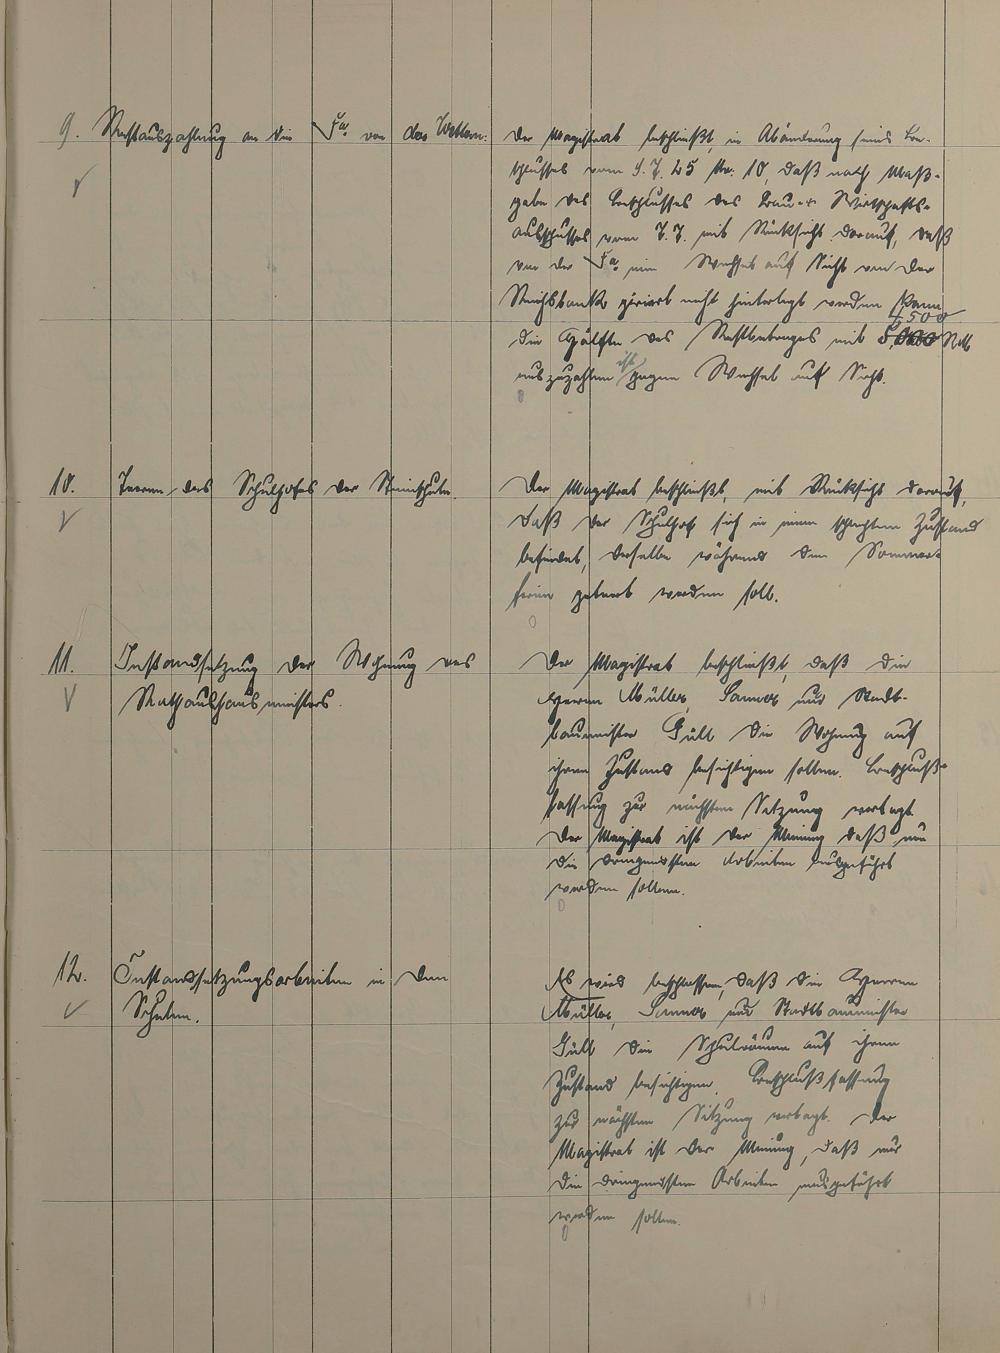 9. Restauszahlung an die Fa. van das Wettern.
Der Magistrat beschließt, in Abänderung seines Be-
schlusses vom 9.7.25 Nr. 10, daß nach Maß-
gabe des Beschlusses des Bau- u. Wirtschafts-
ausschusses vom 7.7. mit Rücksicht darauf, daß
von der Fa. ein Wechsel auf Sicht von der
Reichsbank giriert nicht hinterlegt werden kann
4500
die Hälfte des Restbetrages mit RM
auszuzahlen ist gegen Wechsel auf Sicht.
10. Teeren des Schulhofes der Steinschule.
Der Magistrat beschließt, mit Rücksicht darauf,
daß der Schulhof sich in einem schlechten Zustand
befindet, derselbe während den Sommer-
ferien geteert werden soll.
11. Instandsetzung der Wohnung des
Rathaushausmeisters.
Der Magistrat beschließt, daß die
Herren Müller, und Stadt-
baumeister Güll die Wohnung auf
ihren Zustand besichtigen sollen. Beschluß-
fassung zur nächsten Sitzung vertagt.
Der Magistrat ist der Meinung daß nur
die dringendsten Arbeiten ausgeführt
werden sollen.
12. Instandsetzungsarbeiten in den
Schulen.
Es wird beschlossen, daß die Herren
Müller, und Stadtbaumeister
Güll die Schulräume auf ihren
Zustand besichtigen. Beschlußfassung
zur nächsten Sitzung vertagt. Der
Magistrat ist der Meinung, daß nur
die dringendsten Arbeiten ausgeführt
werden sollen.